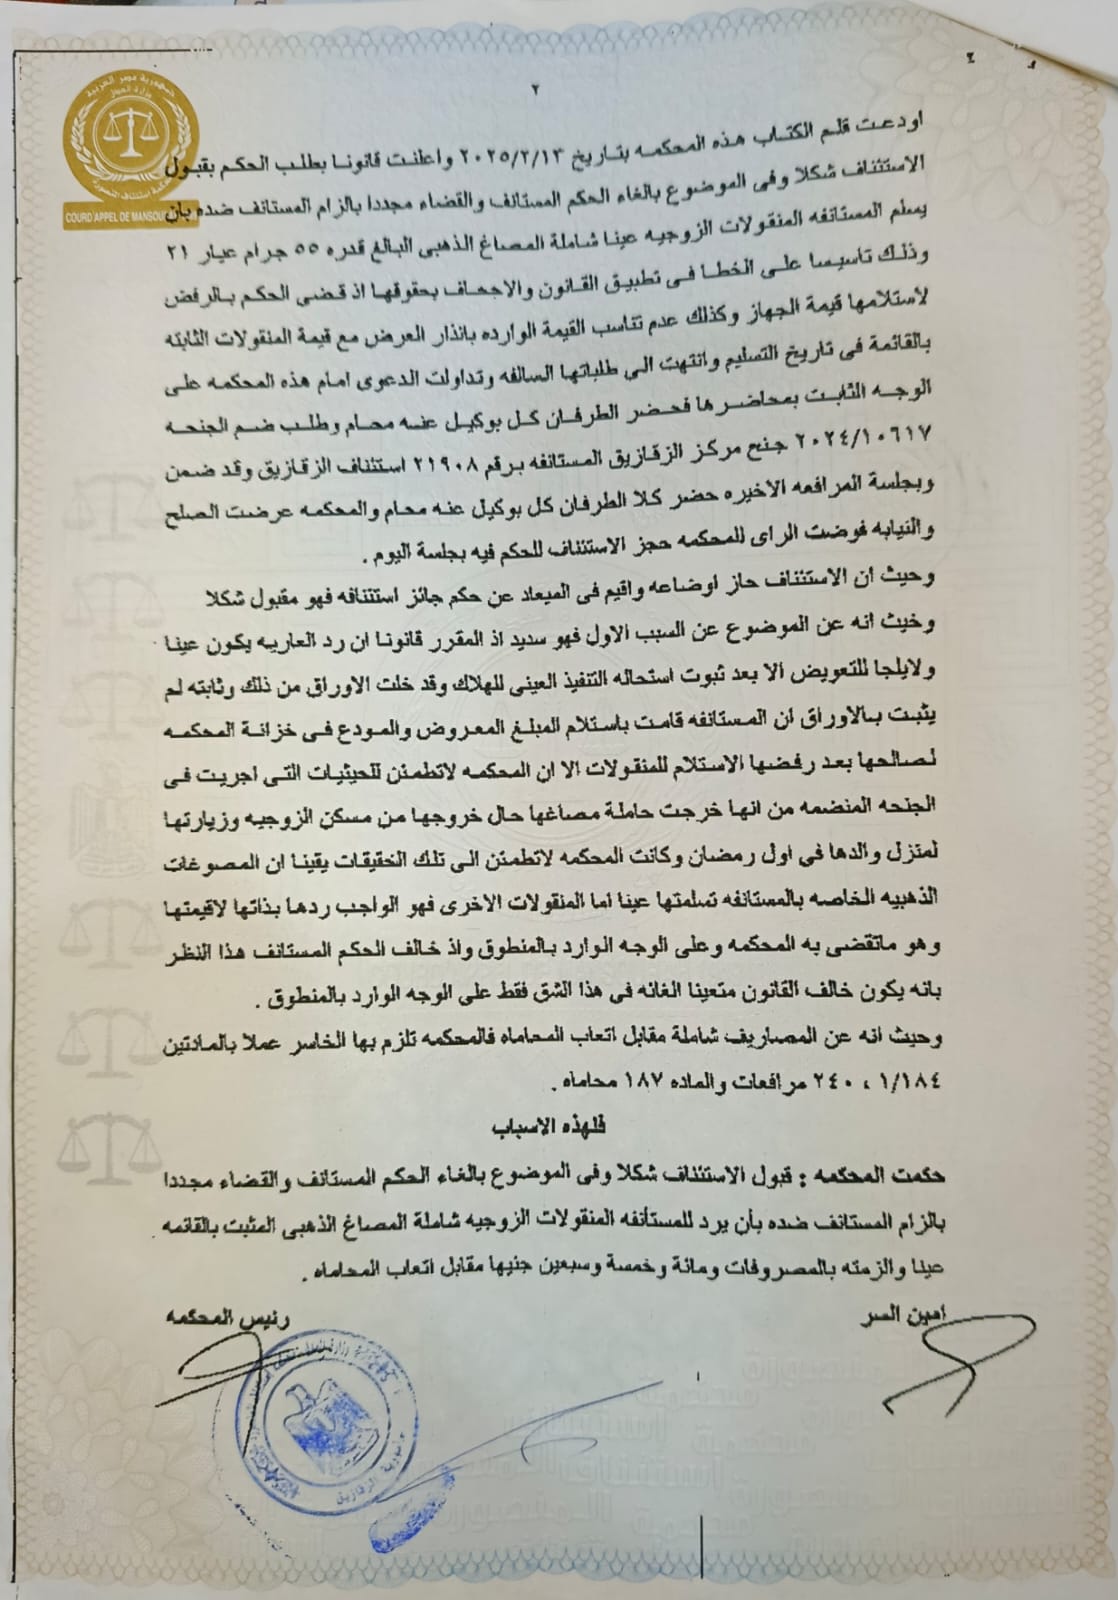 جمهورية مصر العربية
وزارة العدل
محكمة استئناف المنصورة
COURD APPEL DE MANSOU
٢
اودعت قلم الكتاب هذه المحكمه بتاريخ ٢٠٢٥/٢/١٣ واعلنت قانونا بطلب الحكم بقبول
الاستئناف شكلا وفى الموضوع بالغاء الحكم المستانف والقضاء مجددا بالزام المستانف ضده بان
يسلم المستانفه المنقولات الزوجيه عينا شاملة المصاغ الذهبى البالغ قدره ٥٥ جرام عيار ٢١
وذلك تاسيسا على الخطا فى تطبيق القانون والاجحاف بحقوقها اذ قضى الحكم بالرفض
لاستلامها قيمة الجهاز وكذلك عدم تناسب القيمة الوارده بانذار العرض مع قيمة المنقولات الثابته
بالقائمة فى تاريخ التسليم وانتهت الى طلباتها السالفه وتداولت الدعوى امام هذه المحكمه على
الوجه الثابت بمحاضرها فحضر الطرفان كل بوكيل عنه محام وطلب ضم الجنحه
٢٠٢٤/١٠٦١٧ جنح مركز الزقازيق المستانفه برقم ٢١٩٠٨ استئناف الزقازيق وقد ضمن
وبجلسة المرافعه الاخيره حضر كلا الطرفان كل بوكيل عنه محام والمحكمه عرضت الصلح
والنيابه فوضت الراى للمحكمه حجز الاستئناف للحكم فيه بجلسة اليوم .
وحيث ان الاستئناف حاز اوضاعه واقيم فى الميعاد عن حكم جائز استئنافه فهو مقبول شكلا
وخيث انه عن الموضوع عن السبب الاول فهو سديد اذ المقرر قانونا ان رد العاريه يكون عينا
ولايلجا للتعويض الا بعد ثبوت استحاله التنفيذ العينى للهلاك وقد خلت الاوراق من ذلك وثابته لم
يثبت بالاوراق ان المستانفه قامت باستلام المبلغ المعروض والمودع فى خزانة المحكمه
لصالحها بعد رفضها الاستلام للمنقولات الا ان المحكمه لاتطمئن للحيثيات التى اجريت فى
الجنحه المنضمه من انها خرجت حاملة مصاغها حال خروجها من مسكن الزوجيه وزيارتها
لمنزل والدها فى اول رمضان وكانت المحكمه لاتطمئن الى تلك الخقيقات يقينا ان المصوغات
الذهبيه الخاصه بالمستانفه تسلمتها عينا اما المنقولات الاخرى فهو الواجب ردها بذاتها لاقيمتها
وهو ماتقضى به المحكمه وعلى الوجه الوارد بالمنطوق واذ خالف الحكم المستانف هذا النظر
بانه يكون خالف القانون متعينا الغائه فى هذا الشق فقط على الوجه الوارد بالمنطوق .
وحيث انه عن المصاريف شاملة مقابل اتعاب المحاماه فالمحكمه تلزم بها الخاسر عملا بالمادتين
١/١٨٤ ، ٢٤٠ مرافعات والماده ١٨٧ محاماه .
فلهذه الاسباب
حكمت المحكمه : قبول الاستئناف شكلا وفى الموضوع بالغاء الحكم المستانف والقضاء مجددا
بالزام المستانف ضده بأن يرد للمستأنفه المنقولات الزوجيه شاملة المصاغ الذهبى المثبت بالقائمه
عينا والزمته بالمصروفات ومائة وخمسة وسبعين جنيها مقابل اتعاب المحاماه .
امين السر
رئيس المحكمه